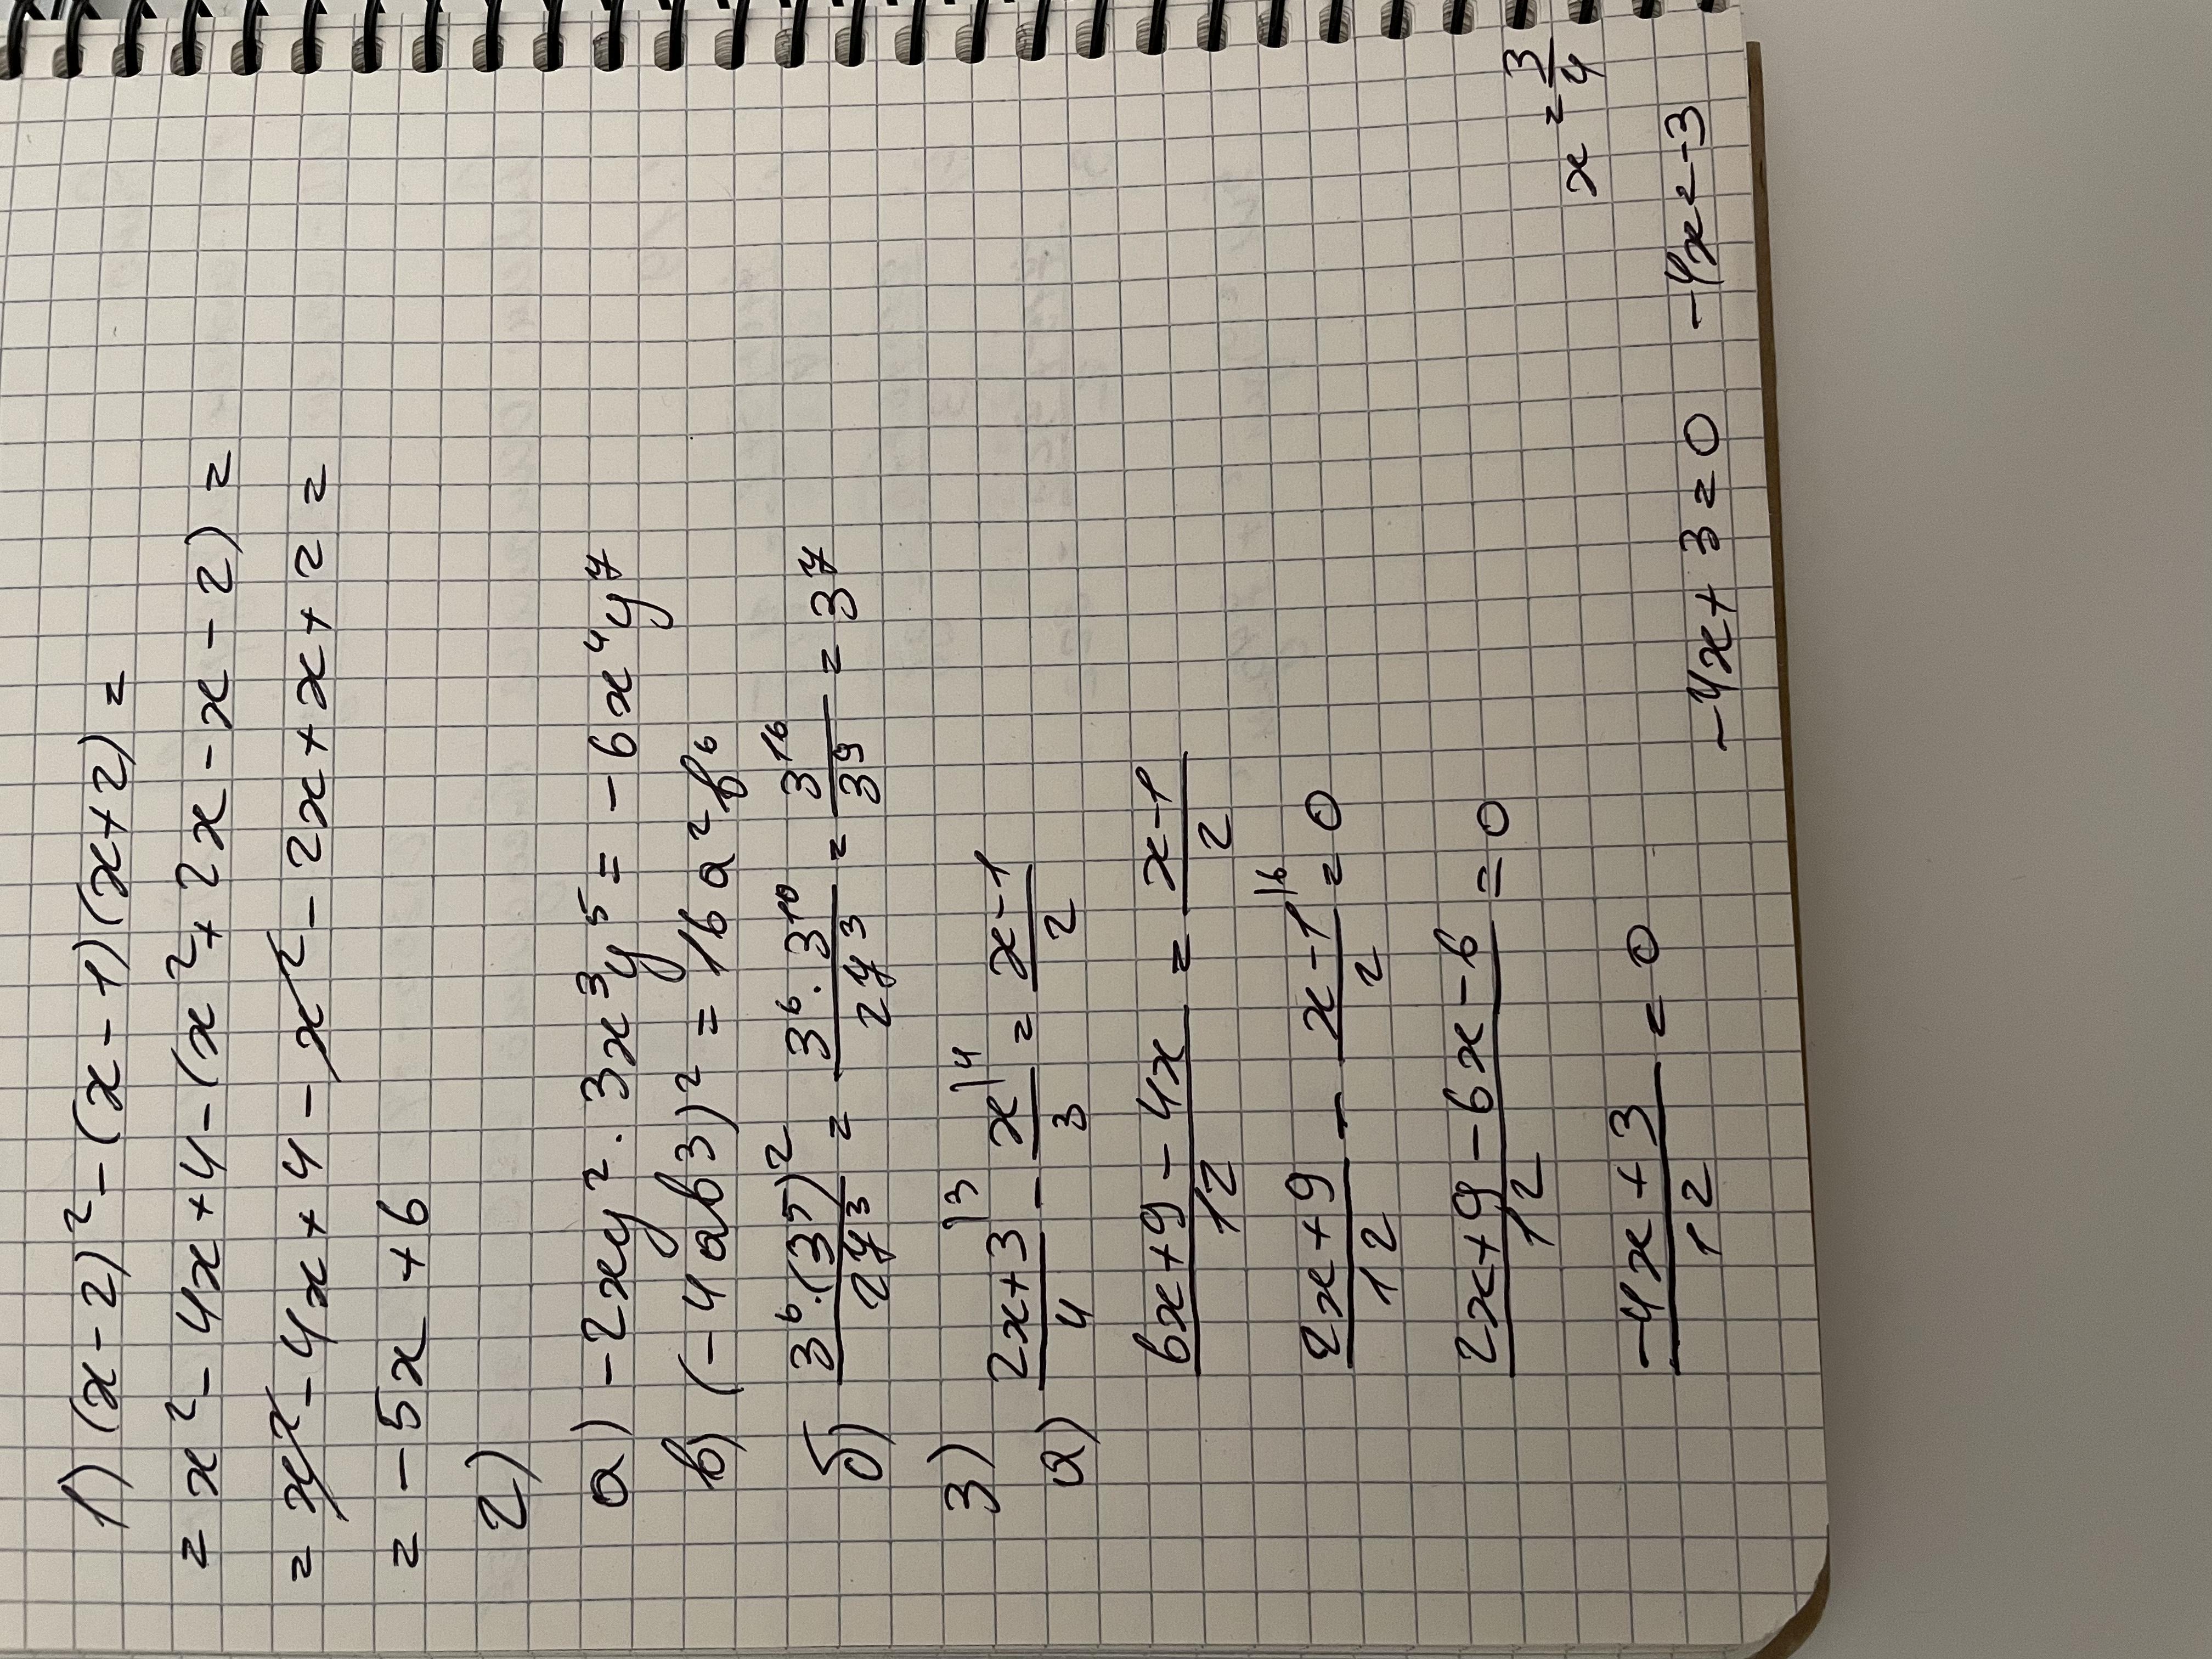 1) (x-2)² - (x-1)(x+2) =
= x² - 4x + 4 - (x² + 2x - x - 2) =
= x² - 4x + 4 - x² - 2x + x + 2 =
= -5x + 6
2)
а) -2xy² · 3x³y⁵ = -6x⁴y⁷
в) (-4ab3)² = 16a²b⁶
б) 3⁶·(3⁵)²/27³ = 3⁶·3¹⁰/27³ = 3¹⁶/3⁹ = 3⁷
3)
а) 2x+3/4 |3 - x/3 |4 = x-1/2
6x+9-4x/12 = x-1/2
2x+9/12 - x-1/2 |6 = 0
2x+9-6x-6/12 = 0
-4x+3/12 = 0
-4x+3=0 -4x=-3
x = 3/4